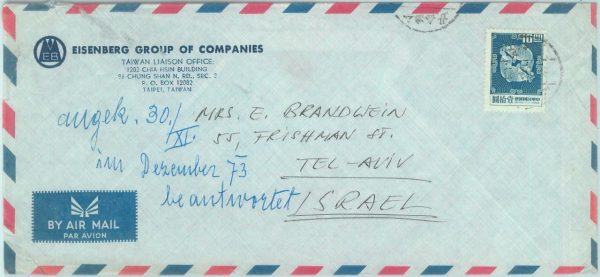 EISENBERG GROUP OF COMPANIES
TAIWAN LIAISON OFFICE:
1203 CHIA HSIN BUILDING
96 CHUNG SHAN N. RD., SEC. 2
P. O. BOX 12082
TAIPEI, TAIWAN
angek. 30./XI.
im Dezember 73
beantwortet
MRS. E. BRANDWEIN
55, FRISHMAN ST.
TEL-AVIV
ISRAEL
BY AIR MAIL
PAR AVION
10.00
圓拾壹